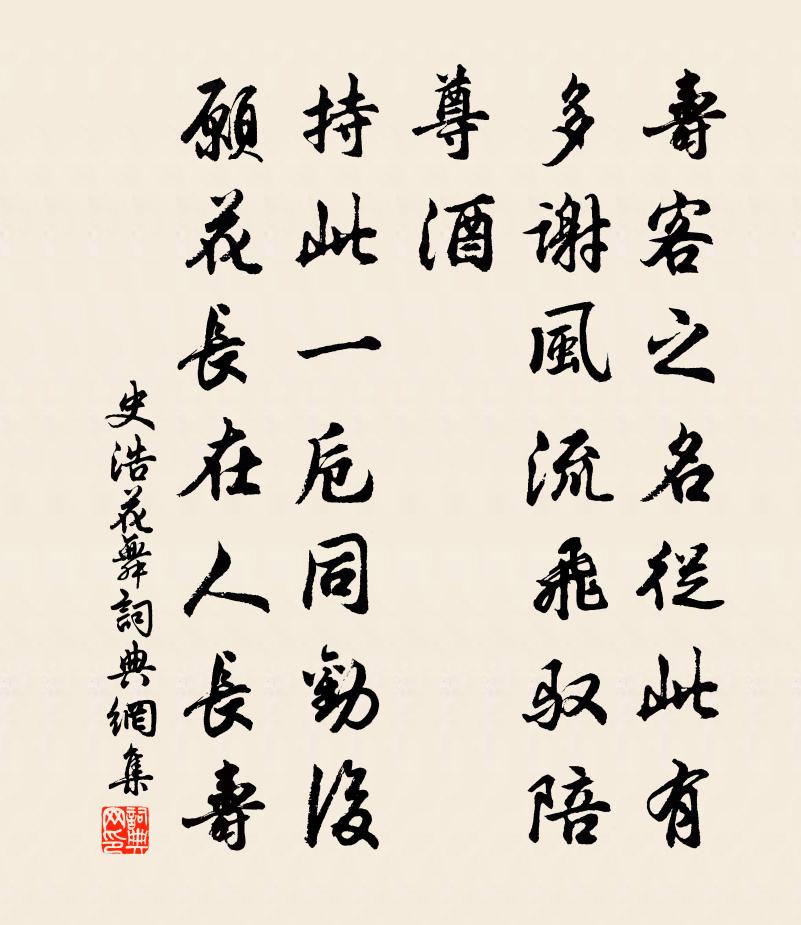 壽客之名從此有
多謝風流飛馭陪
尊酒
持此一卮同勸後
願花長在人長壽
史浩花舞詞典網集
詞典
网印